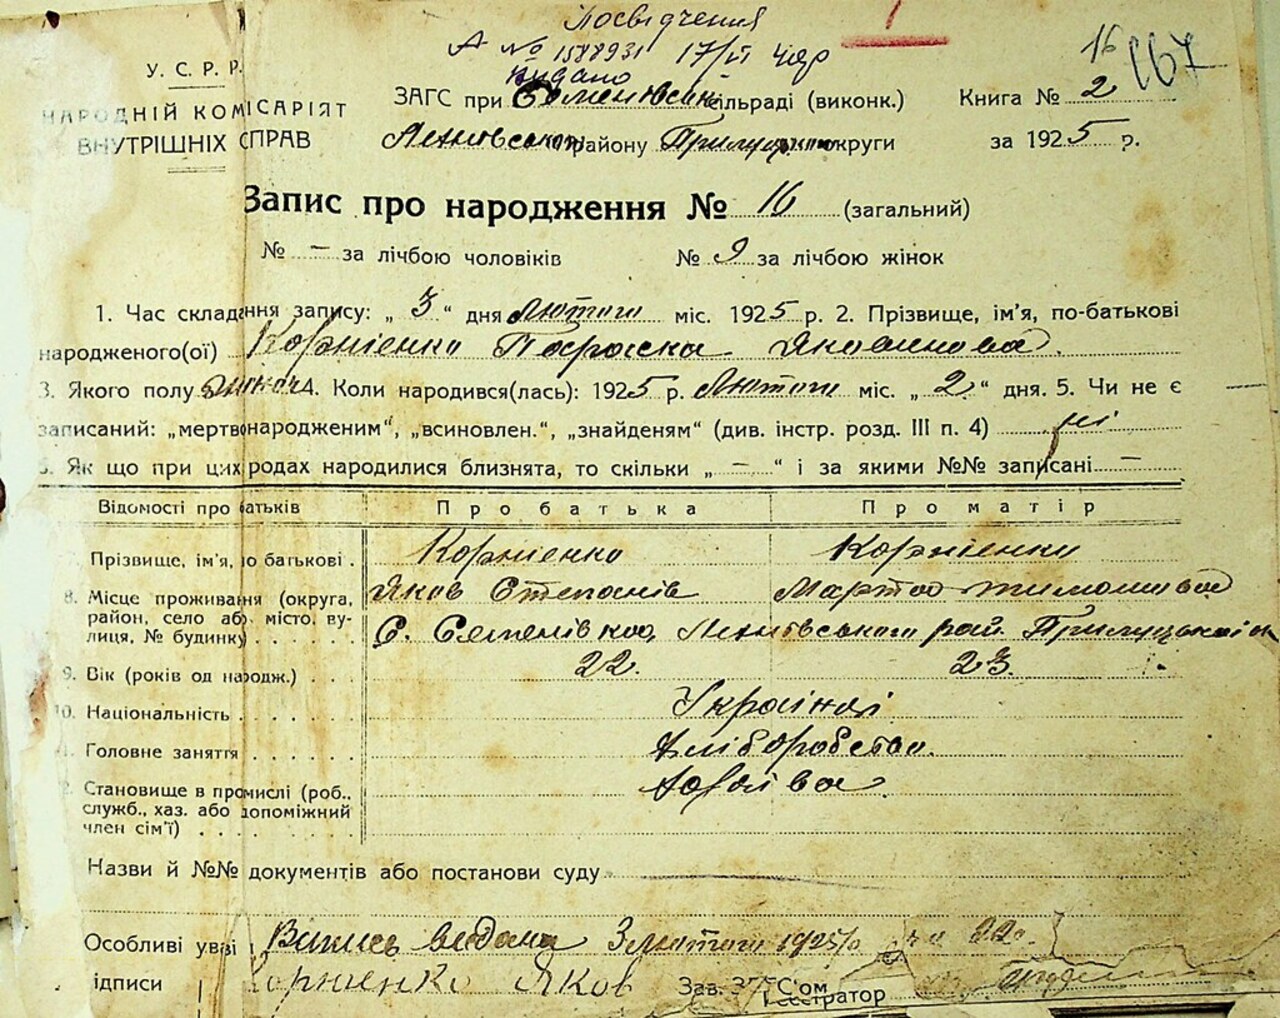 Посвідчення
А № 1588931 17/VI 40р
видано
16
167
У. С. Р. Р.
НАРОДНІЙ КОМІСАРІЯТ
ВНУТРІШНІХ СПРАВ
ЗАГС при Семенівськ. сільраді (виконк.) Книга № 2
району Прилуцької округи за 1925 р.
Запис про народження № 16 (загальний)
№ - за лічбою чоловіків № 9 за лічбою жінок
1. Час складання запису: „ 3 “ дня лютого міс. 1925 р. 2. Прізвище, ім'я, по-батькові
народженого(ої) Корнієнко Параска Яковлівна.
3. Якого полу жіноч 4. Коли народився(лась): 1925 р. Лютого міс. „ 2 “ дня. 5. Чи не є
записаний: „мертвонародженим“, „всиновлен.“, „знайденям“ (див. інстр. розд. III п. 4) ні
Як що при цих родах народилися близнята, то скільки „ - “ і за якими №№ записані -
Відомості про батьків Про батька Про матір
Прізвище, ім'я, по батькові . Корнієнко Корнієнко
Яков Степанів Марта Тимошівна
8. Місце проживання (округа, район, село або місто, вулиця, № будинку) С. Семенівка, рай. Прилуцької
9. Вік (років од народж.) . . . 22. 23.
10. Національність . . . . . . Українці
Головне заняття . . . . . . Хліборобство.
Становище в промислі (роб., служб., хаз. або допоміжний член сім'ї) . . . . Хазяїва.
Назви й №№ документів або постанови суду
Особливі уваги Випись видана 3 лютого 1925 р. за № 22.
ідписи Корнієнко Яков Зав. ЗАГС'ом
Реєстратор